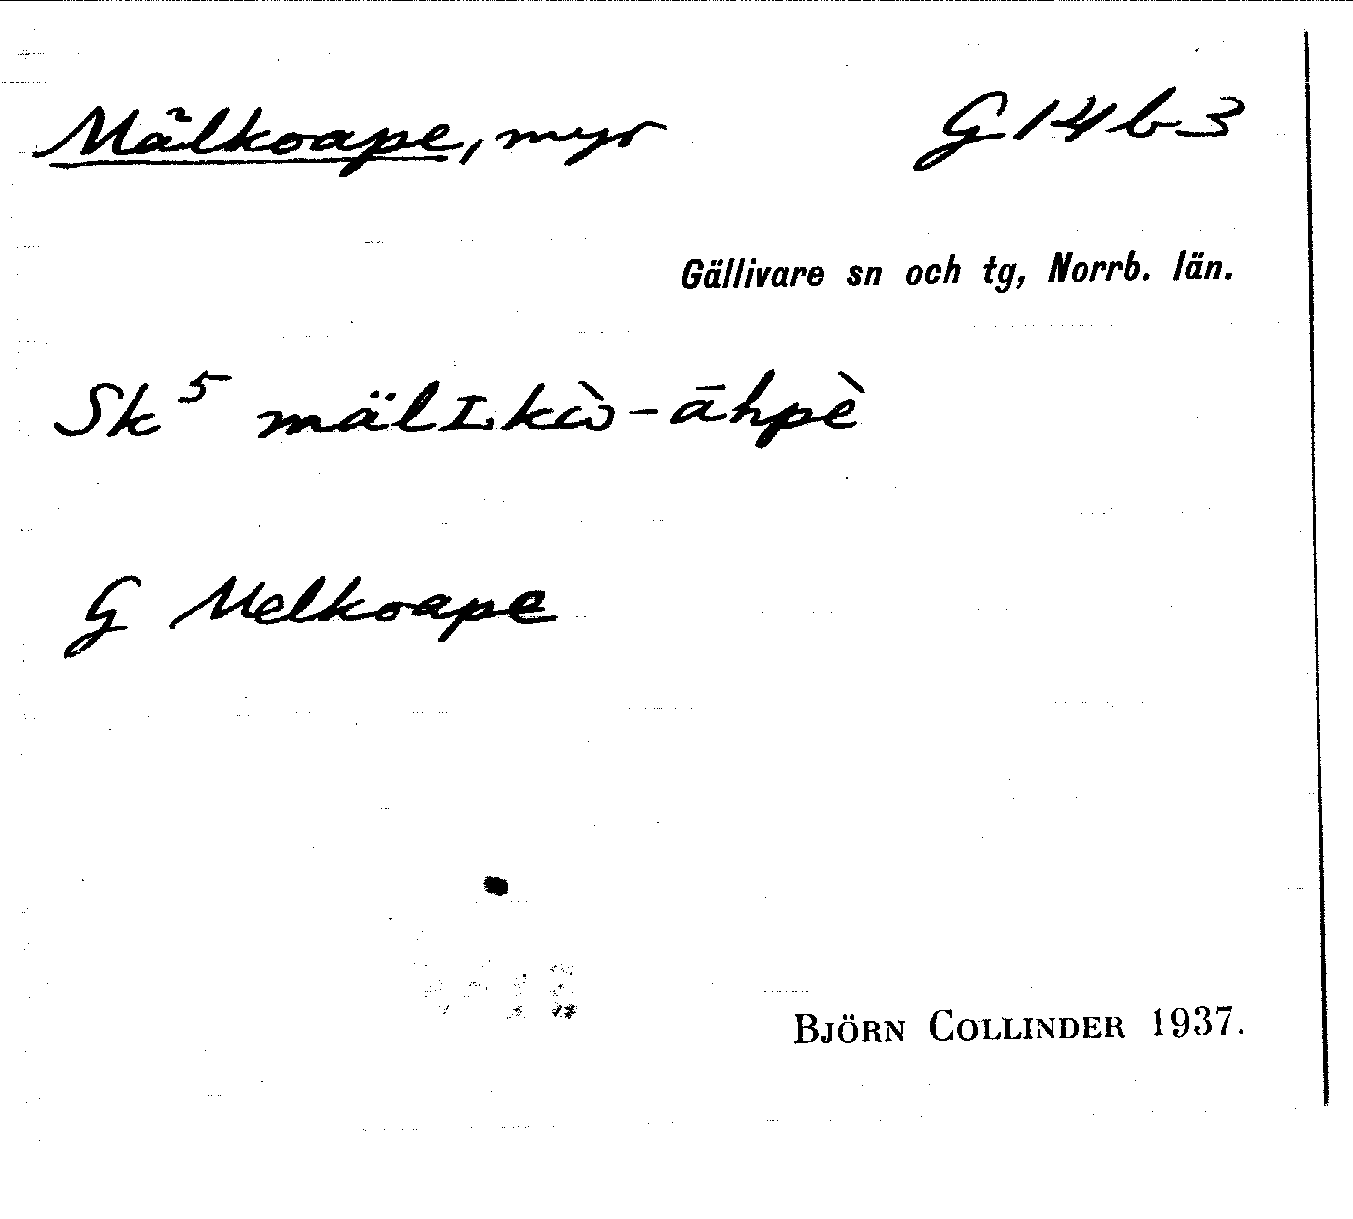 Mälkoape, myr G 14 b 3
Gällivare sn och tg, Norrb. län.
Sk 5 mälI.kὼ-āhpὲ
G Melkoape
BJÖRN COLLINDER 1937.